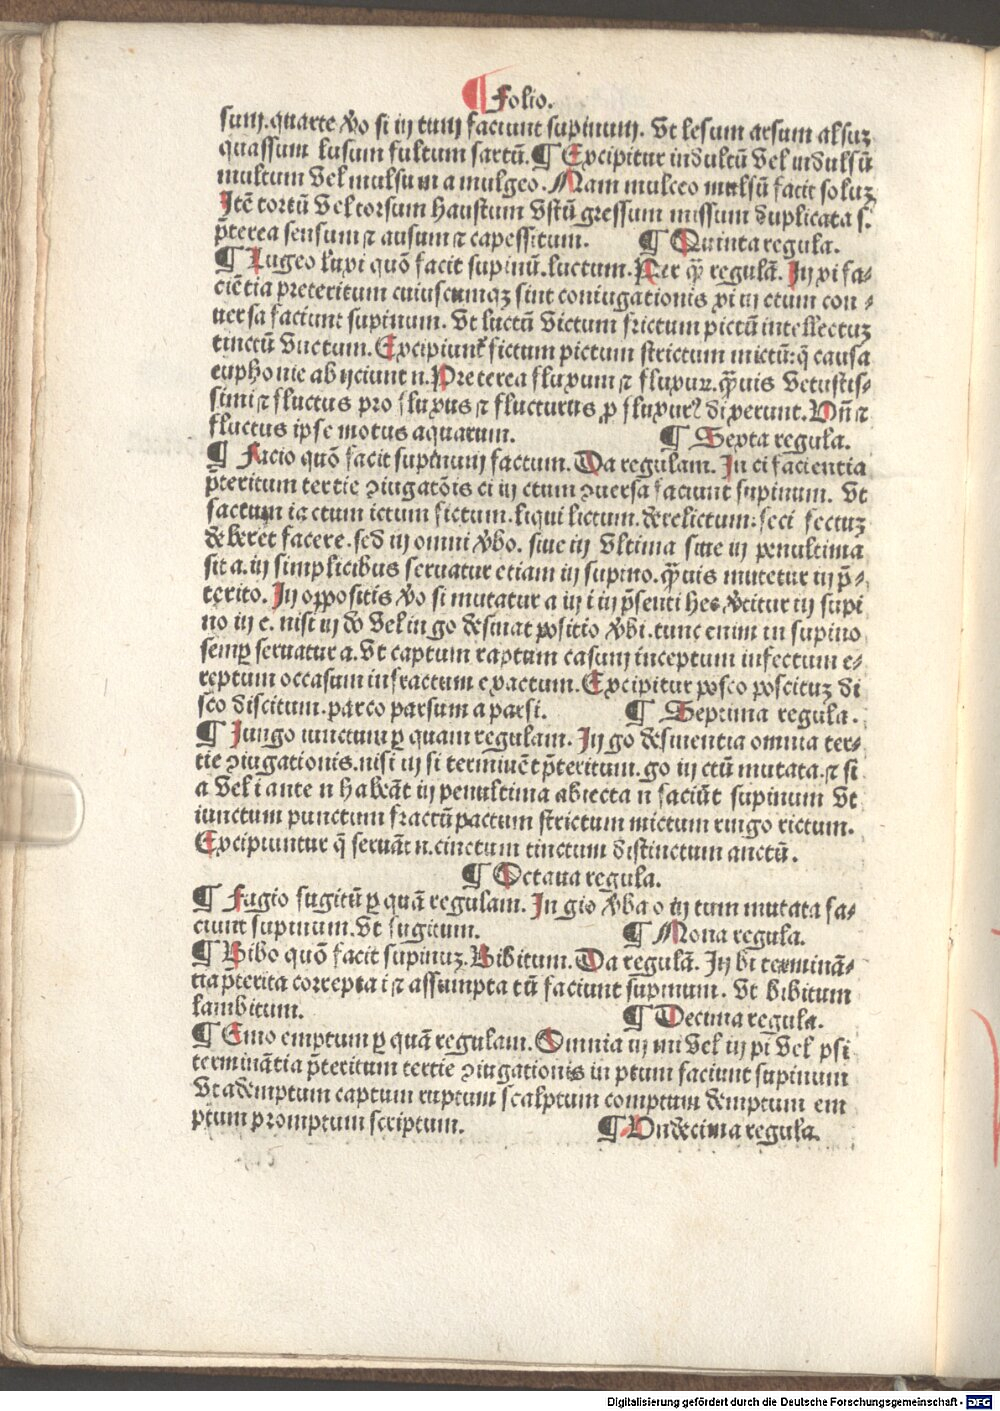 ¶ folio.
sum. quarte v̄o si in tum faciunt supinum. Vt lesum arsum alsuꝫ
quassum lusum fultum sartū. ¶ Excipitur indultū vel indulsū
multum vel mulsum a mulgeo. Nam mulceo mulsū facit soluꝫ
Itē tortū vel torsum haustum vstū gressum missum duplicata s.
p̄terea sensum ⁊ ausum ⁊ capessitum. ¶ Quinta regula.
¶ Lugeo luxi quō facit supinū. luctum. Per q̄ꝫ regulā. In xi fa-
ciētia preteritum cuiuscumqꝫ sint coniugationis xi in ctum con-
uersa faciunt supinum. Vt luctū victum frictum pictū intellectuꝫ
tinctū vnctum. Excipiunt̄ fictum pictum strictum mictū: q̄ causa
euphonie abijciunt n. Preterea fluxum ⁊ fluxur. q̄ꝫuis vetustis-
simi ⁊ fluctus pro fluxus ⁊ flucturus ꝓ fluxurꝰ dixerunt. Vn̄ ⁊
fluctus ipse motus aquarum. ¶ Sexta regula.
¶ Facio quō facit supinum factum. Da regulam. In ci facientia
p̄teritum tertie ꝯiugatōis ci in ctum ꝯuersa faciunt supinum. Vt
factum iactum ictum fictum. liqui lictum. derelictum: feci fectuꝫ
deberet facere. sed in omni v̄bo. siue in vltima siue in penultima
sit a. in simplicibus seruatur etiam in supino. q̄ꝫuis mutetur in p̄-
terito. In ꝯpositis v̄o si mutatur a in i in p̄senti hec v̄titur in supi
no in e. nisi in do vel in go desinat positio v̄bi. tunc enim in supino
semꝑ seruatur a. Vt captum raptum casum inceptum infectum e-
reptum occasum infractum exactum. Excipitur posco poscituꝫ di
sco discitum. parco parsum a parsi. ¶ Septima regula.
¶ Jungo iunctum ꝑ quam regulam. In go desinentia omnia ter-
tie ꝯiugationis. nisi in si terminēt p̄teritum. go in ctū mutata. ⁊ si
a vel i ante n habeāt in penultima abiecta n faciūt supinum Vt
iunctum punctum fractū pactum strictum mictum ringo rictum.
Excipiuntur q̄ seruāt n. cinctum tinctum distinctum anctū.
¶ Octaua regula.
¶ Fugio fugitū ꝑ quā regulam. In gio v̄ba o in tum mutata fa-
ciunt supinum. Vt fugitum. ¶ Nona regula.
¶ Bibo quō facit supinuꝫ. Bibitum. Da regulā. In bi terminā-
tia p̄terita correpta i ⁊ assumpta tū faciunt supinum. Vt bibitum
lambitum. ¶ Decima regula.
¶ Emo emptum ꝑ quā regulam. Omnia in mi vel in pi vel psi
terminātia p̄teritum tertie ꝯiugationis in ptum faciunt supinum
Vt ademptum captum ruptum scalptum comptum demptum em
ptum promptum scriptum. ¶ Vndecima regula.
Digitalisierung gefördert durch die Deutsche Forschungsgemeinschaft - DFG